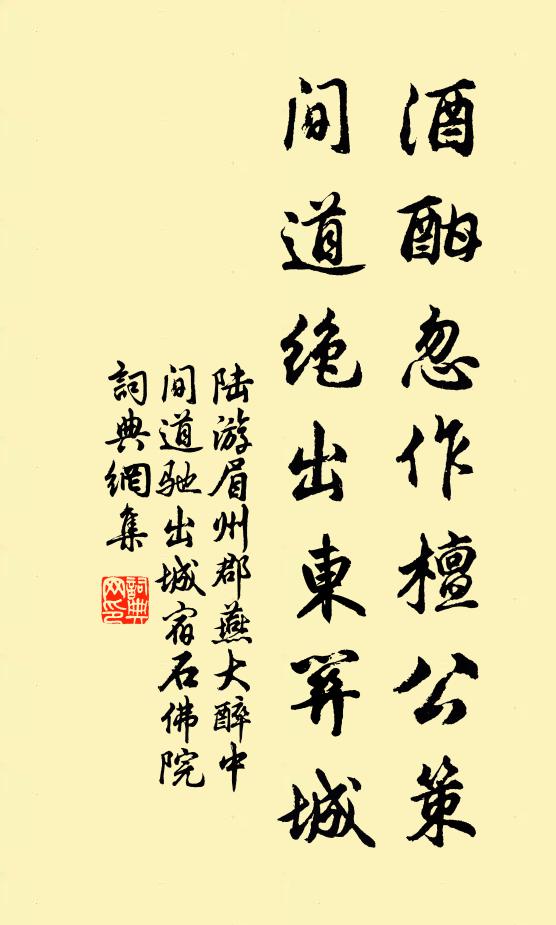 酒酣忽作檀公策
间道绝出東關城
陆游眉州郡燕大醉中
间道驰出城宿石佛院
詞典網集
詞典网印